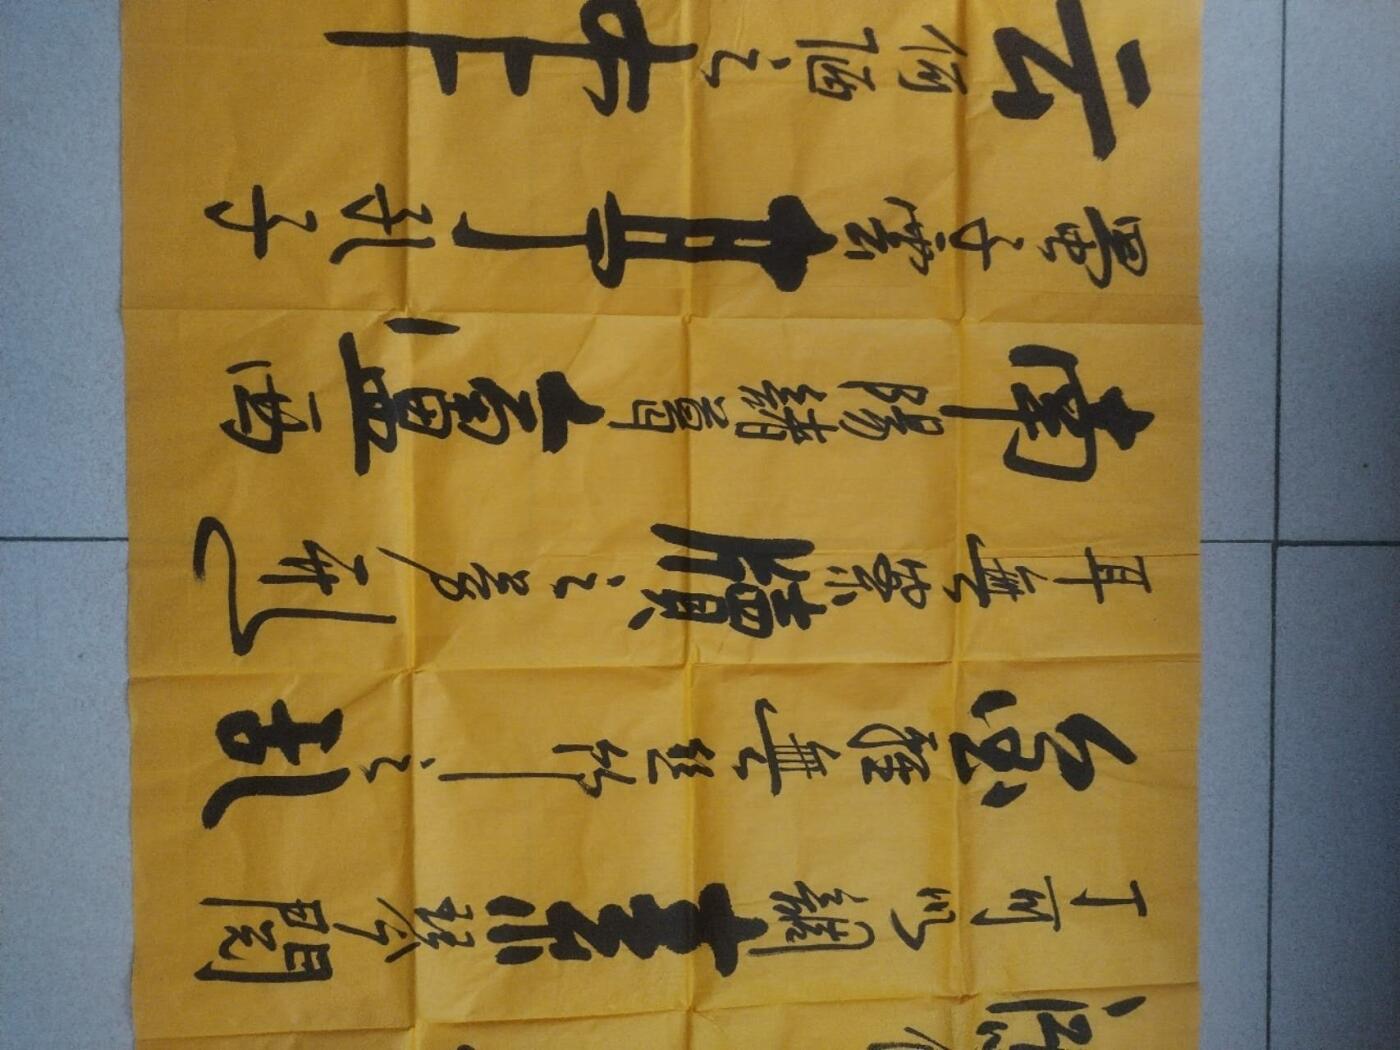 丁可以調素琴閱
金經無絲竹之亂
耳無案牘之勞形
南陽諸葛廬西
蜀子雲亭孔子
云何陋之有